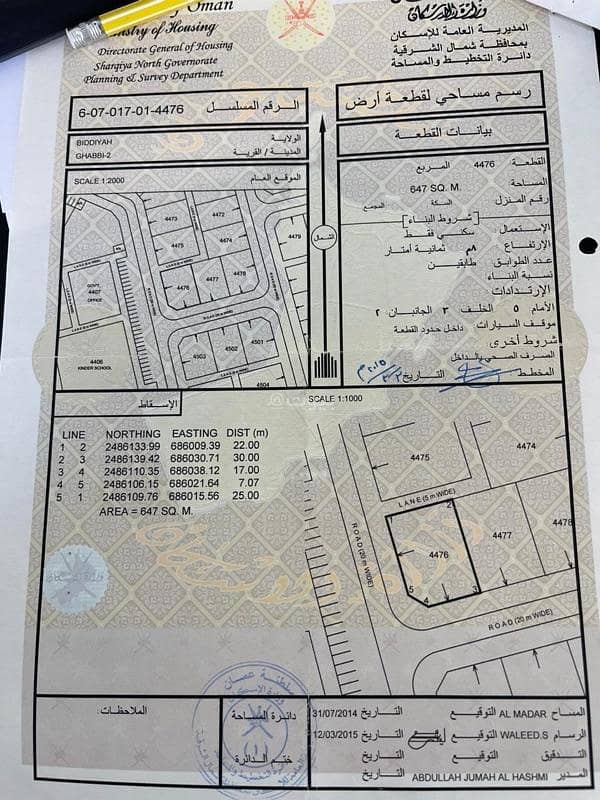 Oman
Ministry of Housing
Directorate General of Housing
Sharqiya North Governorate
Planning & Survey Department
وزارة الإسكان
المديرية العامة للإسكان
بمحافظة شمال الشرقية
دائرة التخطيط والمساحة
6-07-017-01-4476 الرقم المسلسل
رسم مساحي لقطعة أرض
BIDDIYAH الولاية
GHABBI-2 المدينة / القرية
بيانات القطعة
SCALE 1:2000 الموقع العام
القطعة 4476 المربع
المساحة 647 SQ. M.
رقم المنزل السكة المجمع
[شروط البناء]
الإستعمال سكني فقط
الإرتفاع ٨م ثمانية أمتار
عدد الطوابق طابقين
نسبة البناء
الإرتدادات
الأمام ٥ الخلف ٣ الجانبان ٢
موقف السيارات داخل حدود القطعة
شروط أخرى
الصرف الصحي بالداخل
المخطط التاريخ
4473
4472
4479
4475
4474
4476
4477
4478
GOVT.
4407
OFFICE
4503
4502
4501
4406
KINDER SCHOOL
4504
الشمال
الإسقاط
SCALE 1:1000
LINE NORTHING EASTING DIST (m)
1 2 2486133.99 686009.39 22.00
2 3 2486139.42 686030.71 30.00
3 4 2486110.35 686038.12 17.00
4 5 2486106.15 686021.64 7.07
5 1 2486109.76 686015.56 25.00
AREA = 647 SQ. M.
4475
4474
LANE (5 m WIDE)
1
2
4476
4477
4478
5
4
3
ROAD (20 m WIDE)
ROAD (20 m WIDE)
الملاحظات
دائرة المساحة
ختم الدائرة
المساح AL MADAR التوقيع التاريخ 31/07/2014
الرسام WALEED.S التوقيع التاريخ 12/03/2015
التدقيق التوقيع التاريخ
المدير ABDULLAH JUMAH AL HASHMI التاريخ